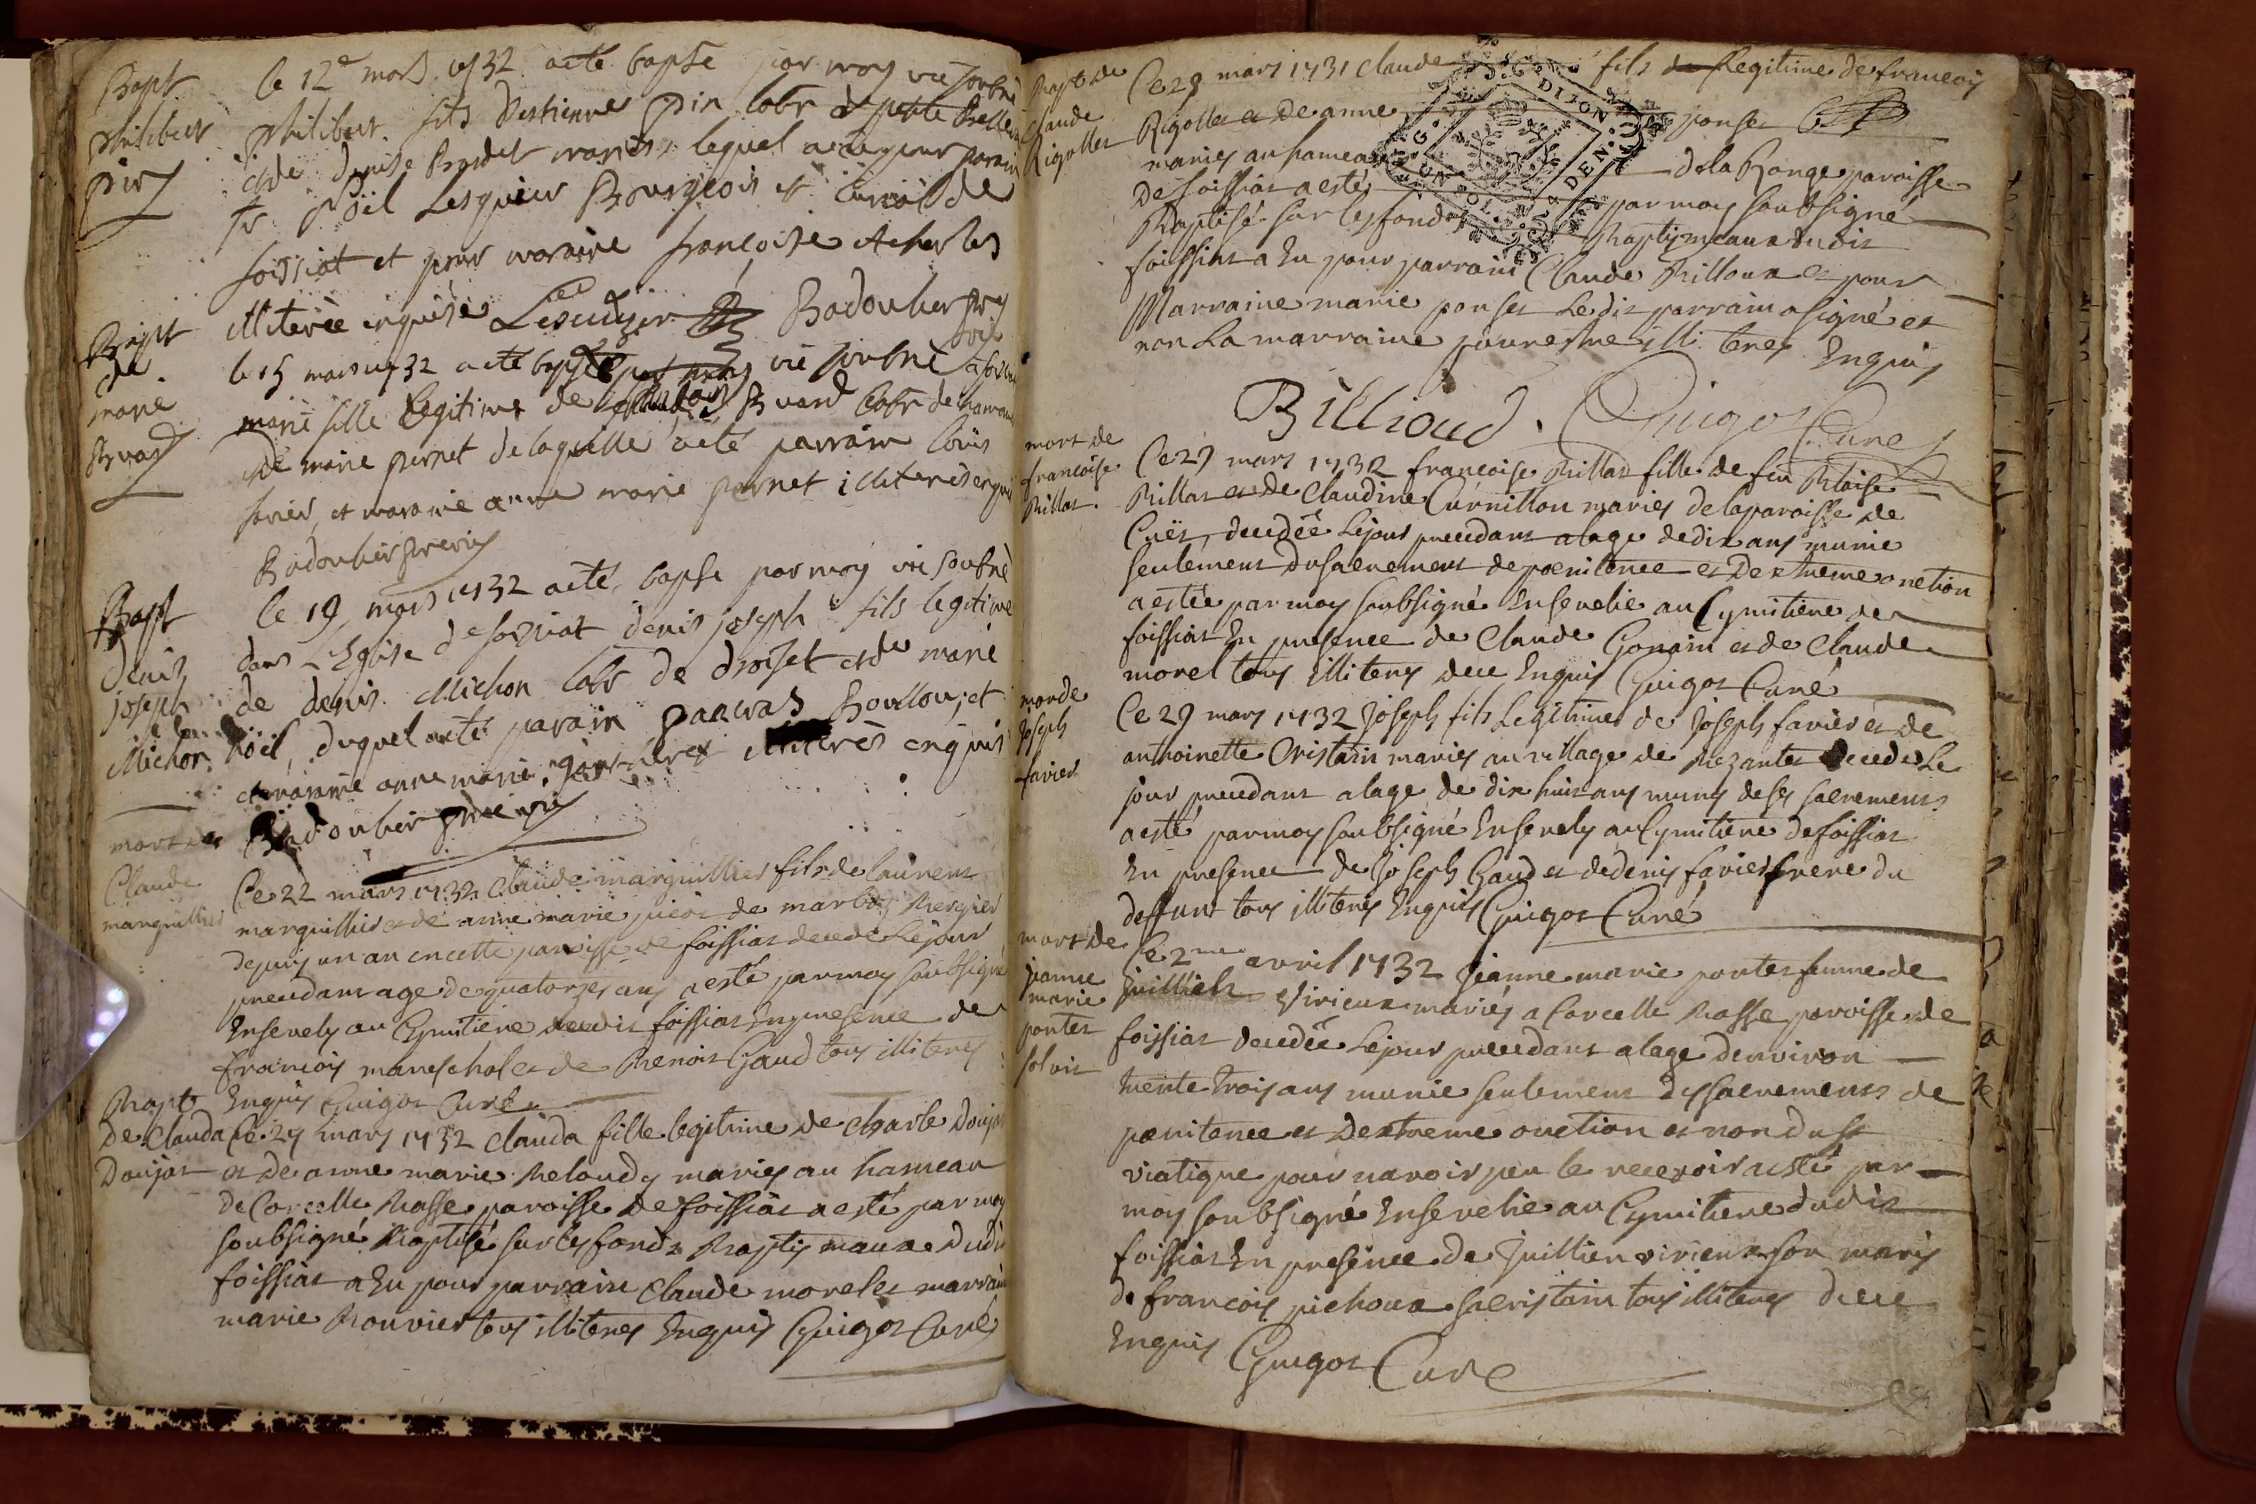 Bapt
philibert
Pin
le 12e mars 1732 a eté bapsé par moy vic soubné
philibert fils d'Estienne Pin labr
et de denise Bordet mariés, lequel a eu pour parain
sr Noël Lesquieur Bourgeois et curial de
foissiat et pour maraine françoise
illiterée enquise Lescuyer Badoulier
Bapt
de
marie
Buard
le 15 mars 1732 a eté bapsée vic soubné
marie fille legitime de Buard labr
et de marie pernet de laquelle a eté parrain loüis
favier, et maraine anne marie pernet illiterés enquis
Badoulier
Bapt
denis
joseph
Michon
le 19 mars 1732 a eté bapse par moy vic soubné
dans l'Eglise de foissiat denis joseph fils legitime
de denis Michon labr de droiset et de marie
Noël, duquel a eté parain pancras Bouilloux, et
et maraine anne marie illiterés enquis
Badoulier
mort de
Claude
marguillier
Ce 22 mars 1732 Claude marguillier fils de laurent
marguillier et de anne marie picot de marboz Bergier
depuis un an en cette paroisse de foissiat decedé le jour
precedant age de quatorze ans a esté par moy soubsigné
Ensevely au Cymitiere dudit foissiat En presence de
françois mareschal et de Benoit Gaud tous illiterés
Enquis Guigot Curé
Bapt
De Clauda
Doujat
Ce 29 mars 1732 Clauda fille legitime de Charle Doujat
et de anne marie Beloudy mariés au hameau
de Corcelle Basse paroisse de foissiat a esté par moy
soubsigné Baptisé sur les fonds Baptismaux dudit
foissiat a Eu pour parrain Claude morel et marraine
marie Bouvier tous illiterés Enquis Guigot Curé
Bapt de
Claude
Rigollet
Ce 29 mars 1731 Claude fils Legitime de françois
Rigollet et de anne ponset
mariés au hameau de la Ronge paroisse
De foissiat a esté par moy soubsigné
Baptisé sur les fonds Baptismaux dudit
foissiat a Eu pour parrain Claude Billoux et pour
Marraine marie ponset Ledit parrain a signé et
non La marraine pour estre illiterée Enquis
Billioud. Guigot Curé
mort de
francoise
Billat.
Ce 29 mars 1732 francoise Billat fille de feu Blaise
Billat et de Claudine Curnillon mariés de la paroisse de
Cuët, decedée Le jour precedant a lage de dix ans munie
seulement du sacrement de poenitence et Dextreme onction
a estée par moy soubsigné Ensevelie au Cymitiere de
foissiat En presence de Claude Gonain et de Claude
morel tous illiterés de ce Enquis Guigot Curé
mort de
Joseph
favier
Ce 29 mars 1732 Joseph fils Legitime de Joseph favier et de
anthoinette Cristain mariés au village de Bezantet decedé Le
jour precedant a lage de dix huit ans munis de ses sacrements
a esté par moy soubsigné Ensevely au Cymitiere de foissiat
En presence de Joseph Gaud et de denis favier frere du
deffunt tous illiterés Enquis Guigot Curé
mort de
jeanne
marie
pontet
solvit
Ce 2me avril 1732 Jeanne marie pontet femme de
Juillien Virieux mariés a Corcelle Basse paroisse de
foissiat decedée Le jour precedant a lage denviron
trente trois ans munie seulement des sacrements de
poenitence et Dextreme onction et non du st
viatique pour navoir peu le recevoir a esté par
moy soubsigné Ensevelie au Cymitiere dudit
foissiat En presence de Juillien virieux son maris
de françois pichoux sacristain tous illiterés de ce
Enquis Guigot Curé